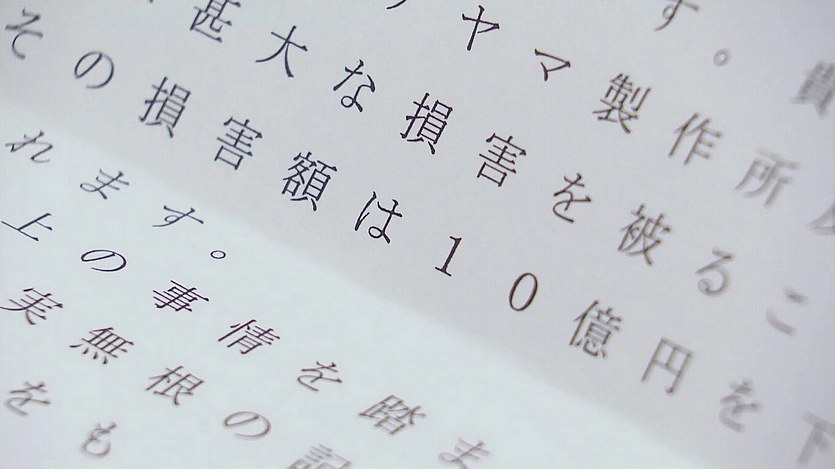 す。貴
ヤマ製作所
甚大な損害を被るこ
その損害額は10億円を下
れます。
上の事情を踏ま
実無根の記
をも